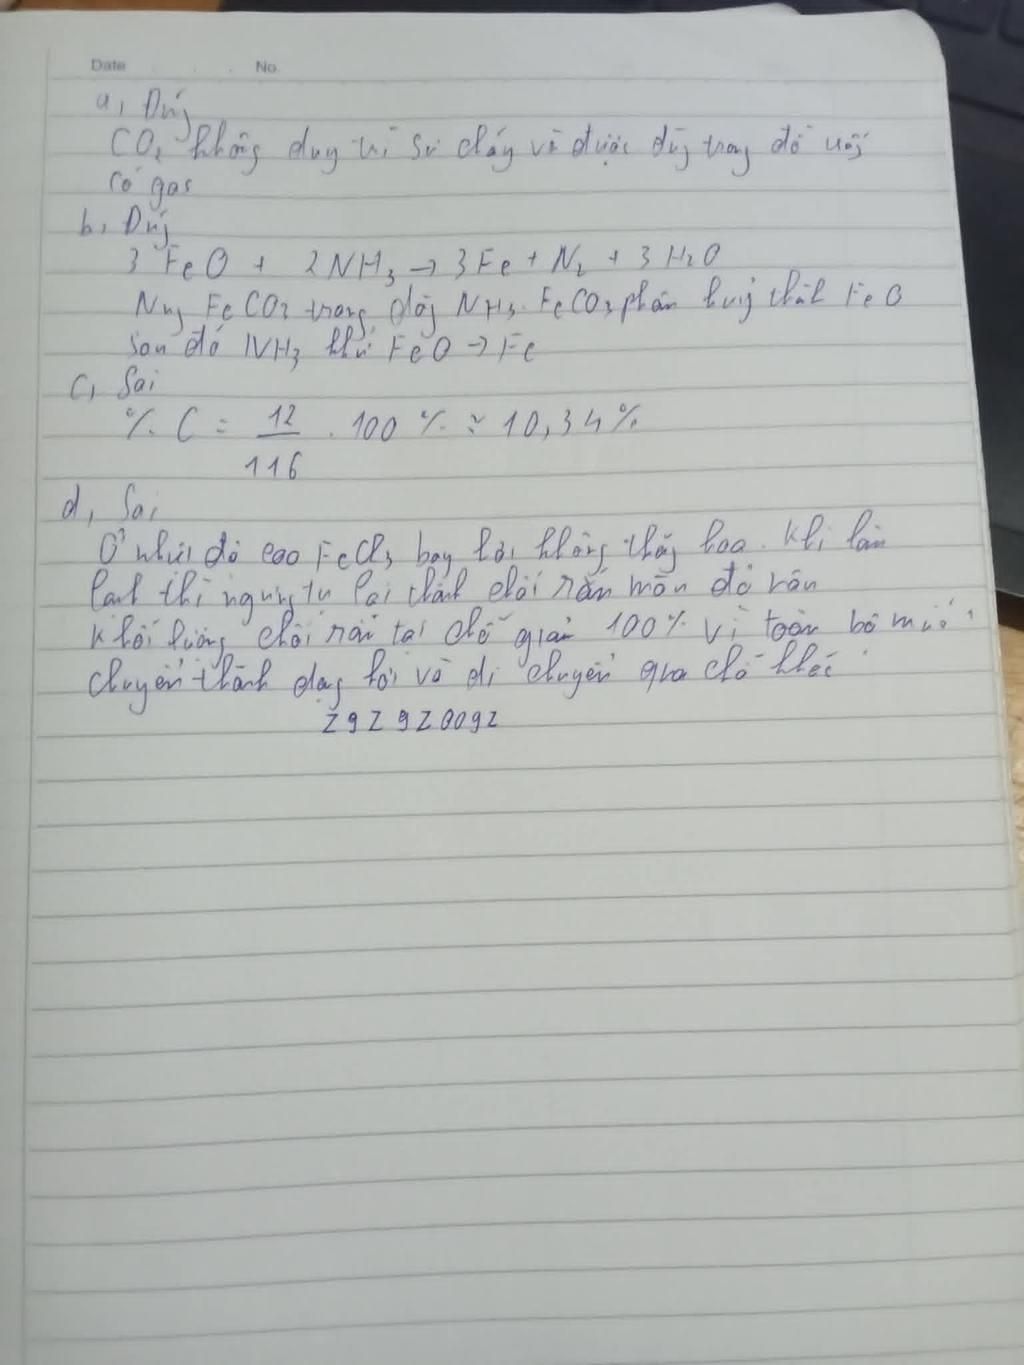 Date . . . No.
a, Đúng
CO₂ không duy trì sự cháy và được dùng trong đồ uống
có gas
b, Đúng
3 FeO + 2NH₃ → 3Fe + N₂ + 3H₂O
Nung FeCO₃ trong dòng NH₃. FeCO₃ phân huỷ thành FeO
sau đó NH₃ khử FeO → Fe
c, Sai
% C = 12/116 . 100 % ≈ 10,34%
d, Sai
Ở nhiệt độ cao FeCl₃ bay hơi không thăng hoa. Khi làm
lạnh thì ngưng tụ lại thành chất rắn màu đỏ nâu
Khối lượng chất rắn tại chỗ giảm 100% vì toàn bộ muối
chuyển thành dạng hơi và di chuyển qua chỗ khác